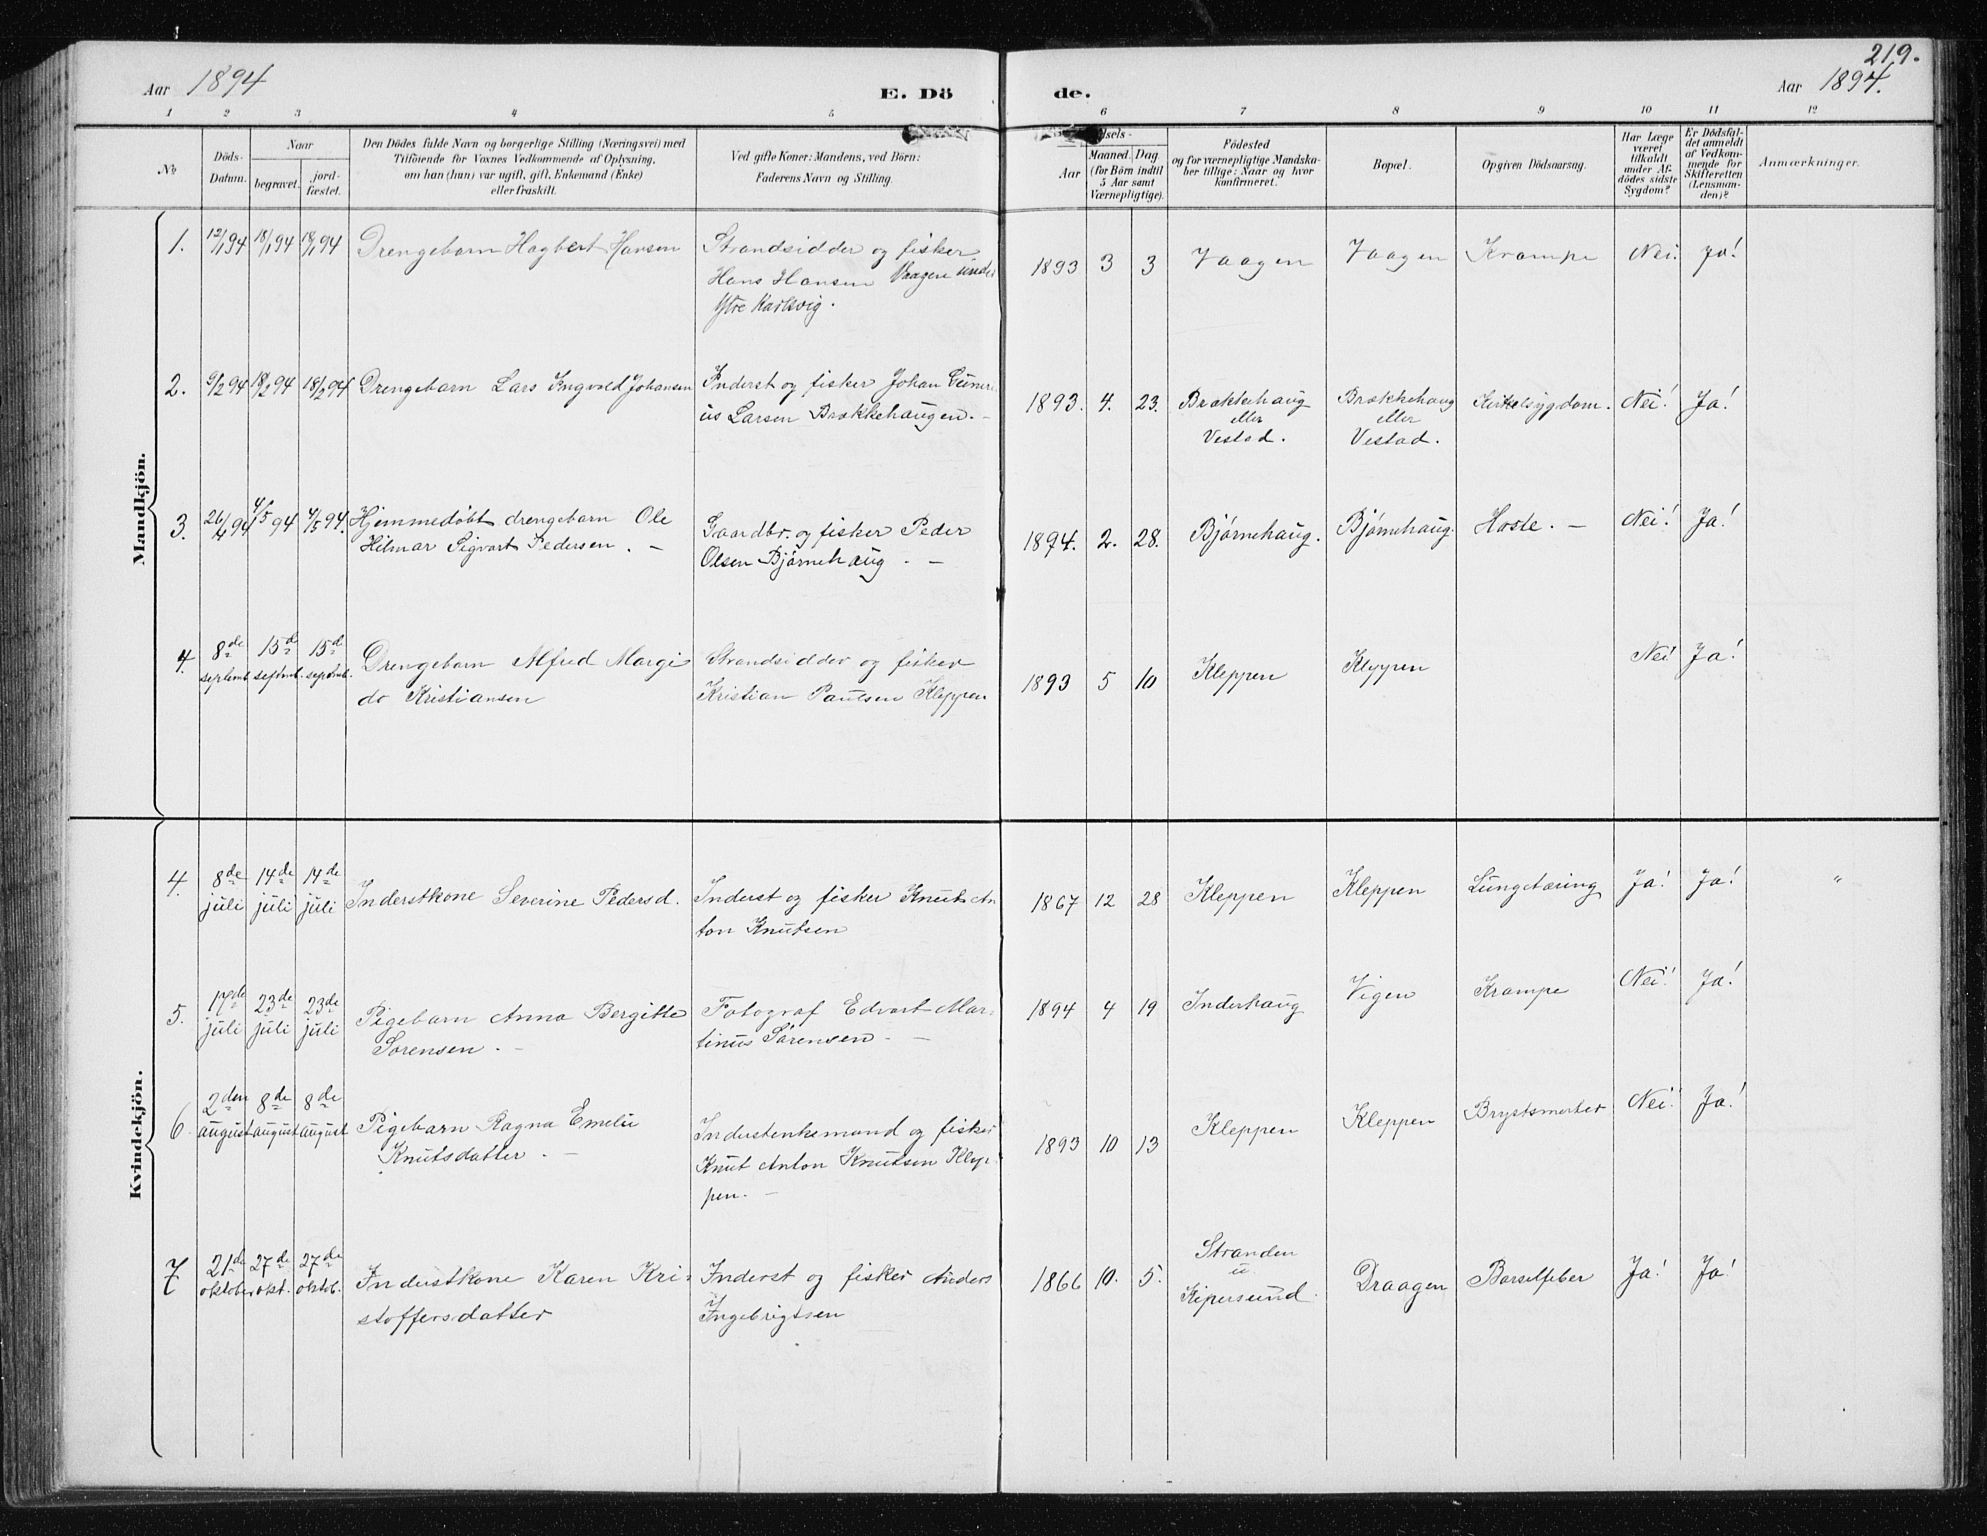 219.
Aar 1894
E. Dö
de.
Aar 1894.
1 2 3 4 5 6 7 8 9 10 11 12
No
Döds-
Datum.
Naar
begravet.
jord-
fæstet.
Den Dödes fulde Navn og borgerlige Stilling (Næringsvei) med
Tilföiende for Voxnes Vedkommende af Oplysning,
om han (hun) var ugift, gift, Enkemand (Enke)
eller fraskilt.
Ved gifte Koner: Mandens, ved Börn:
Faderens Navn og Stilling.
dsels-
Aar
Maaned. Dag
(for Börn indtil
5 Aar samt
Værnepligtige).
Födested
og for værnepligtige Mandska-
ber tillige: Naar og hvor
konfirmeret.
Bopæl.
Opgiven Dödsaarsag.
Har Læge
været
tilkaldt
under Af-
dödes sidste
Sygdom?
Er Dödsfal-
det anmeldt
af Vedkom-
mende for
Skifteretten
(Lensman-
den)?
Anmærkninger.
Mandkjön.
1. 12/1 94 18/1 94 18/1 94 Drengebarn Hagbert Hansen
Strandsidder og fisker
Hans Hansen Vaagen under
Ytre Karlsvig.
1893 3 3 Vaagen Vaagen Krampe Nei. Ja!
2. 9/2 94 18/2 94 18/2 94 Drengebarn Lars Ingvold Johansen
Inderst og fisker Johan Guner-
ius Larsen Brækkehaugen. –
1893. 4. 23. Brækkehaug
eller
Vestad.
Brækkehaug
eller
Vestad.
Kirtelsygdom. Nei! Ja!
3. 26/4 94 4/5 94 4/5 94. Hjemmedøbt drengebarn Ole
Hilmar Sigvart Pedersen. –
Gaardbr. og fisker Peder
Olsen Bjørnehaug. –
1894. 2. 28. Bjørnehaug. Bjørnehaug. Hoste. – Nei! Ja!
4. 8de
septemb.
15d
septmb.
15d
septmb.
Drengebarn Alfred Margi
do Kristiansen
Strandsidder og fisker
Kristian Paulsen Kleppen
1893 5 10 Kleppen Kleppen Nei! Ja!
Kvindekjön.
4. 8de
juli
14de
juli
14de
juli
Inderstkone Severine Pedersd.
Inderst og fisker Knut An
ton Knutsen
1867 12 28 Kleppen Kleppen Lungetæring Ja! Ja! "
5. 17de
juli
23de
juli
23de
juli
Pigebarn Anna Bergitte
Sørensen. –
Fotograf Edvart Mar-
tinus Sørensen. –
1894 4 19 Inderhaug Vigen Krampe Nei! Ja!
6. 2den
august
8de
august
8de
august
Pigebarn Ragna Emelie
Knutsdatter. –
Inderstenkemand og fisker
Knut Anton Knutsen Klep-
pen. –
1893 10 13 Kleppen Kleppen Brystsmerter Nei! Ja!
7 21de
oktober
27de
okt.
27de
oktob.
Inderstkone Karen Kri-
stoffersdatter
Inderst og fisker Anders
Ingebrigtsen
1866 10. 5. Stranden
u.
Kipersund.
Draagen Barselfeber Ja! Ja!